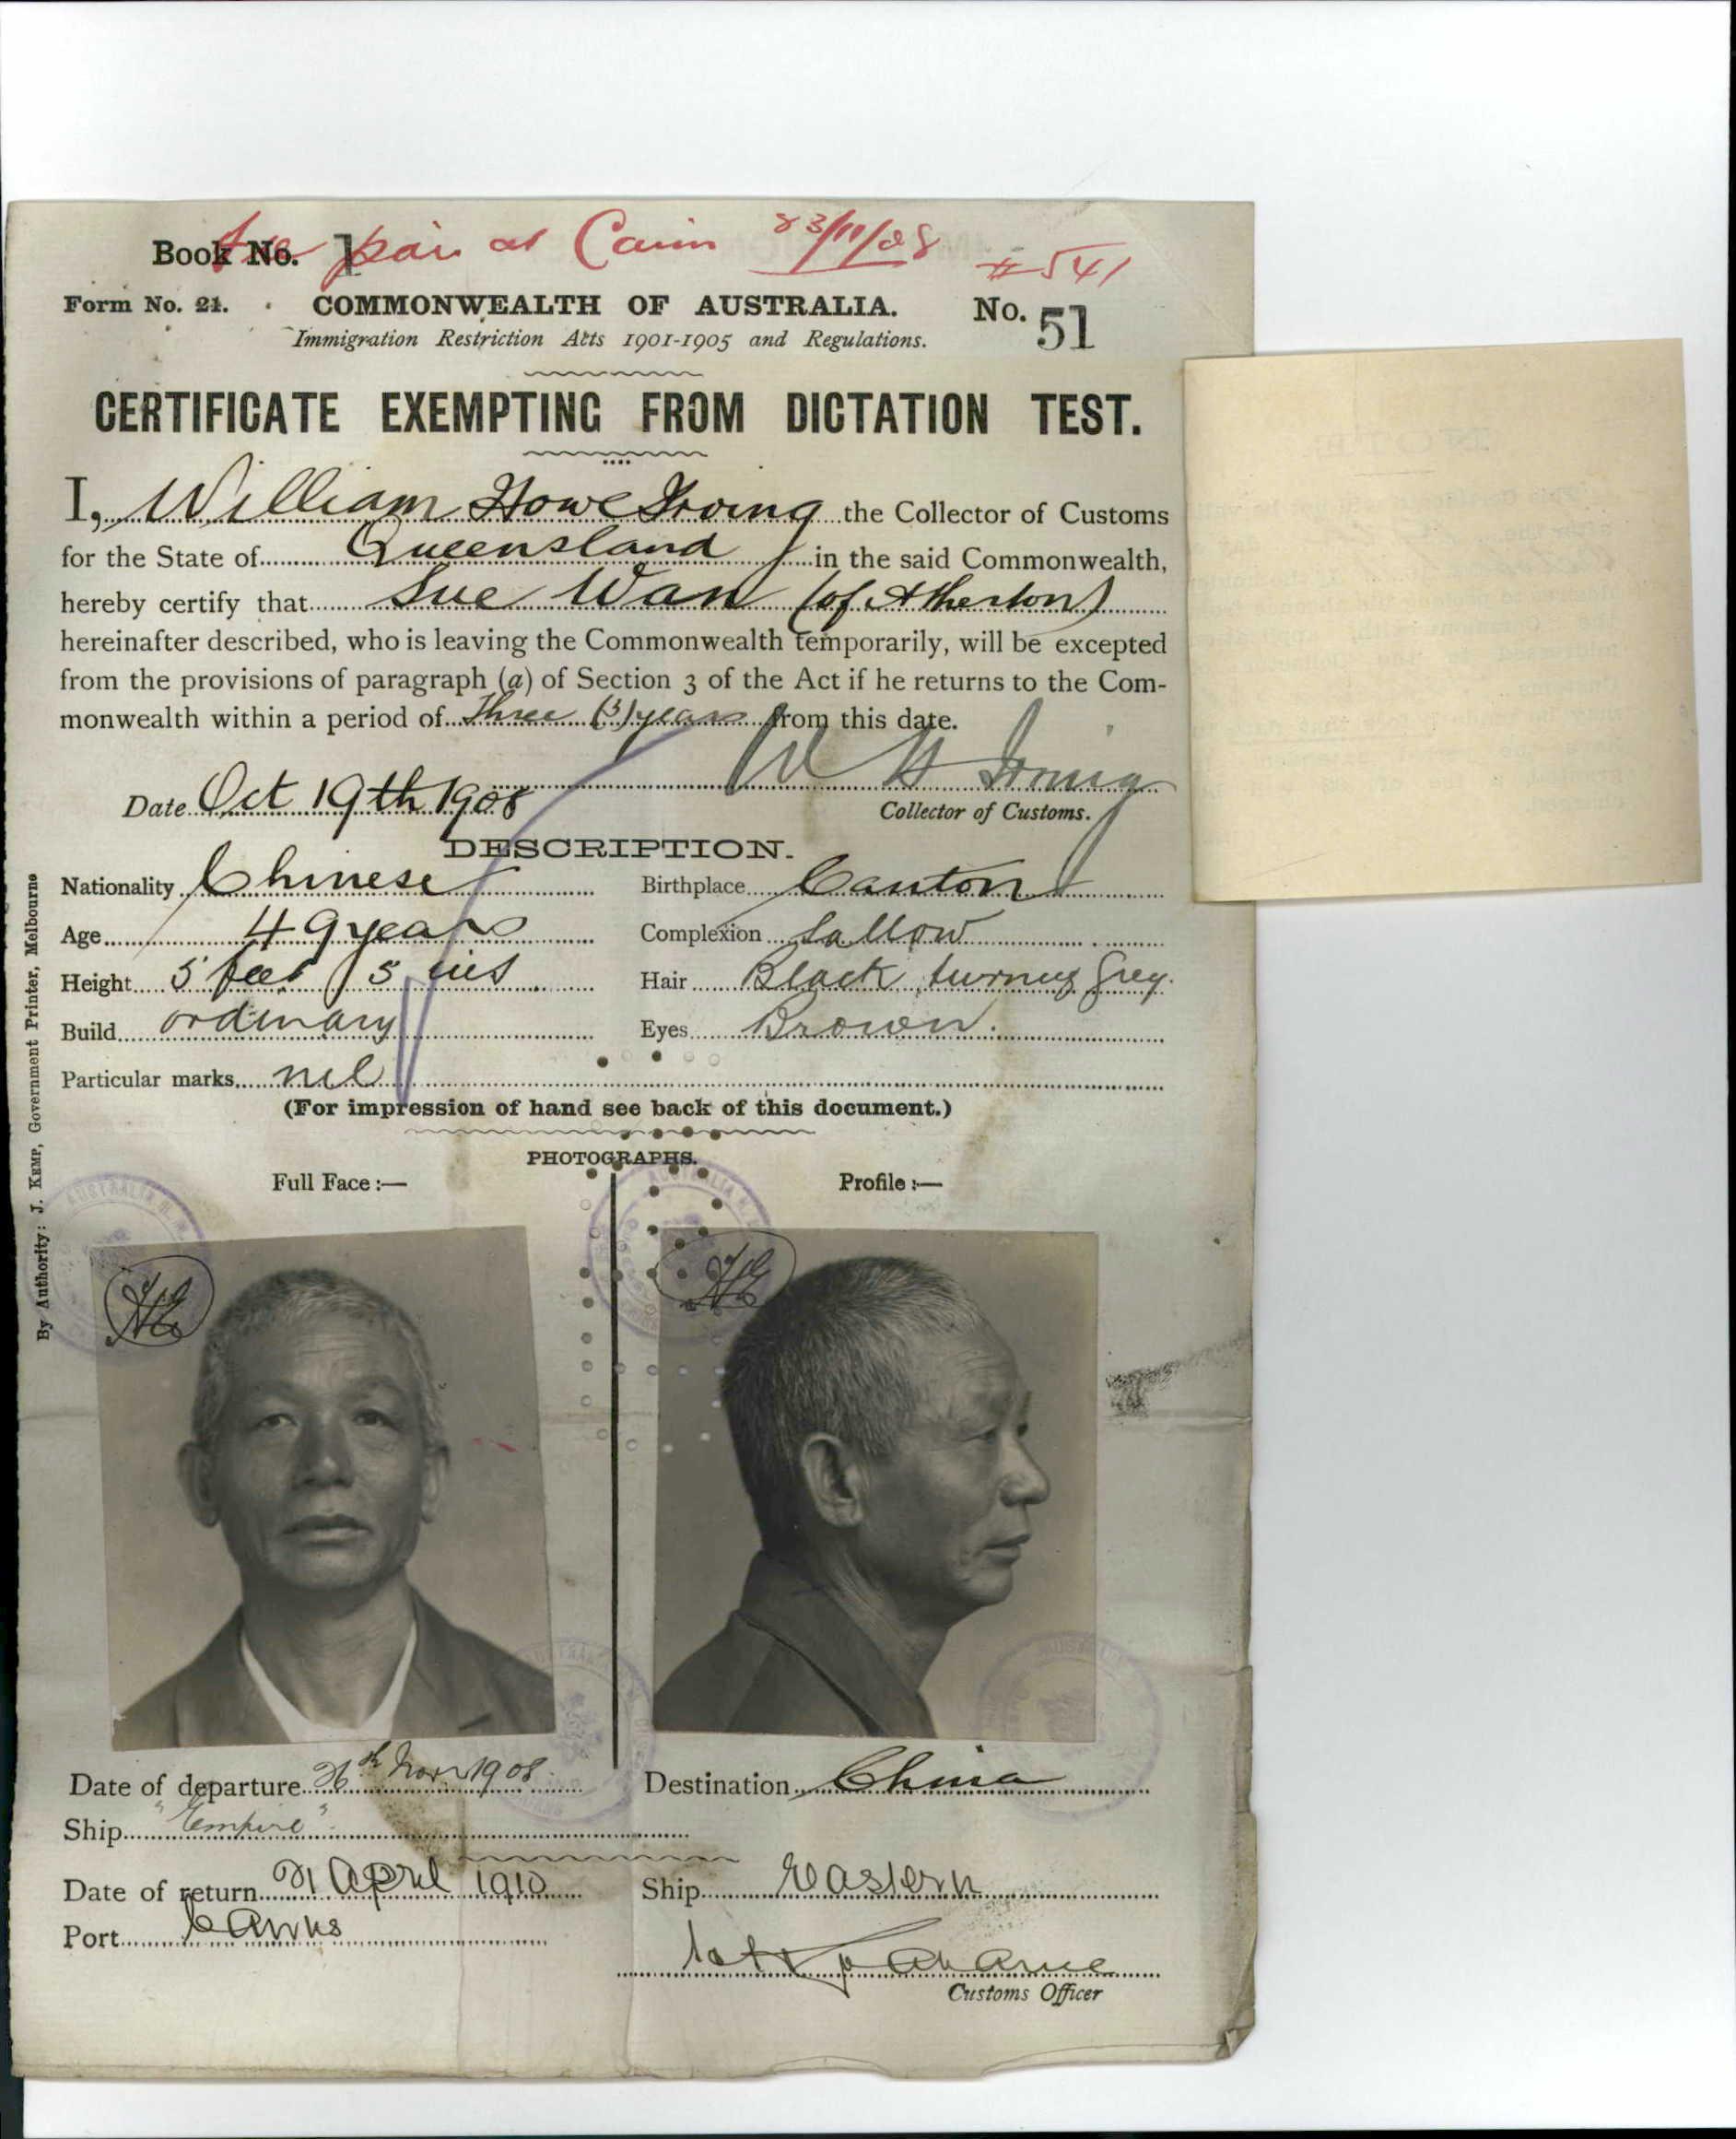 Book No. 1
Fee paid at Cairns 23/11/08
#541
Form No. 21. COMMONWEALTH OF AUSTRALIA. No. 51
Immigration Restriction Acts 1901-1905 and Regulations.
CERTIFICATE EXEMPTING FROM DICTATION TEST.
I, William Howe Irving the Collector of Customs
for the State of Queensland in the said Commonwealth,
hereby certify that Sue Wan (of Atherton)
hereinafter described, who is leaving the Commonwealth temporarily, will be excepted
from the provisions of paragraph (a) of Section 3 of the Act if he returns to the Com-
monwealth within a period of Three (3) years from this date.
W H Irving
Date Oct 19th 1908 Collector of Customs.
DESCRIPTION.
Nationality Chinese Birthplace Canton
Age 49 years Complexion Sallow
Height 5 feet 5 ins Hair Black turning Grey.
Build ordinary Eyes Brown.
Particular marks nil
(For impression of hand see back of this document.)
PHOTOGRAPHS.
Full Face :— Profile :—
Date of departure 26th Nov 1908 Destination China
Ship "Empire"
Date of return 21 April 1910 Ship Eastern
Port Cairns
Customs Officer
By Authority: J. KEMP, Government Printer, Melbourne